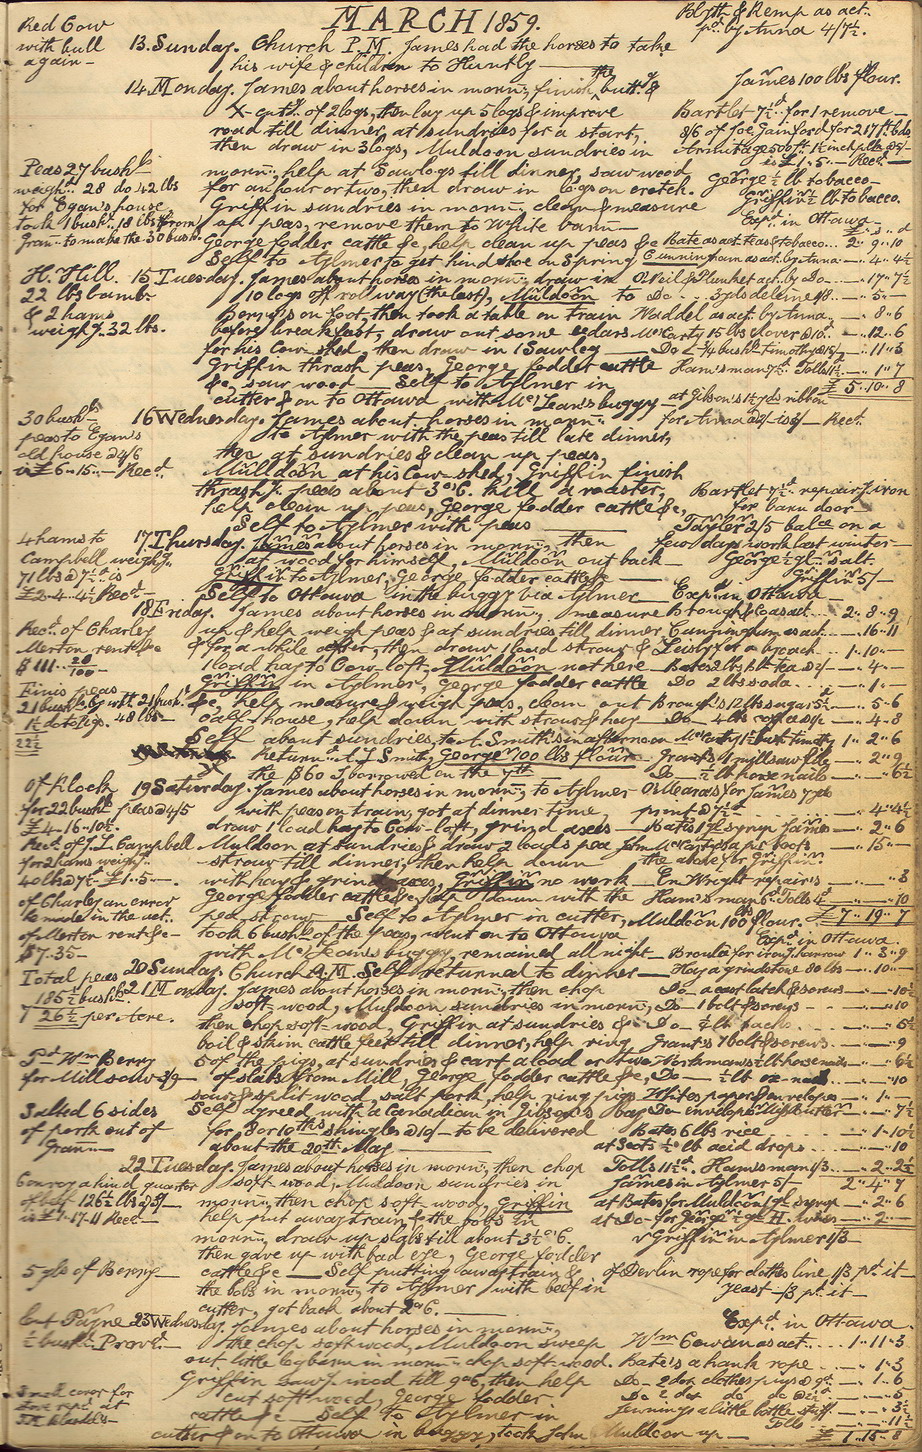 MARCH 1859.
Red Cow
with bull
again —
13. Sunday. Church P.M. James had the horses to take
his wife & children to Huntly
Blyth & Kemp as act.
pd. by Anna 4/7½.
14 Monday. James about horses in morng, finish the buttg &
X-cutg of 2 logs, then lay up 5 logs & improve
road till dinner, at sundries for a start,
then draw in 3 logs, Muldoon sundries in
morng, help at Sawlogs till dinner, saw wood
for an hour or two, then draw in logs on crotch.
Griffin sundries in morng, clean & measure
up peas, remove them to White barn —
George fodder cattle &c, help clean up peas &c
Self to Aylmer to get hind shoe on Spring
James 100 lbs flour.
Bartlet 7½d. for 1 remove —
8/6 of Joe Gainford for 217 ft
Armitage 500 ft 1½ inch plk
is £1..5.. — Recd. —
George ½ lb tobacco —
Griffin ½ lb tobacco.
Expd. in Ottawa —
£ s d
Bate as act. tea & tobacco... 2 .. 9 .. 10
Cunningham as act. by Anna — .. 4 .. 4½
Peas 27 bushls
weighg. 28 do 42 lbs
for Egan's house
took 1 bushl. 18 lbs from
Grany. to make the 30 bush.
H. Hill.
22 lbs bacon
& 2 hams
weighg. 32 lbs.
15 Tuesday. James about horses in morng, draw in
10 logs off rollway (the last), Muldoon to
Berry's on foot, then took a table on Train
before breakfast, draw out some cedars
for his Cow-shed, then draw in 1 Sawlog
Griffin thrash peas, George fodder cattle
&c, saw wood — Self to Aylmer in
cutter & on to Ottawa with McLean's buggy
O'Neil & Plunket act. by Do — .. 17 .. 7½
to Do .. 3 yds delaine — .. 5 —
Waddel as act. by Anna.. — .. 8 .. 6
McCarty 15 lbs clover @10d.. — .. 12 .. 6
Do ¾ bushl. timothy @15/ — .. 11 .. 3
Hamsman 7½d. Tolls 11½. — .. 1 .. 7
£ 5 .. 10 .. 8
at Gibson's 1½ yds ribbon
for Anna @2/- is 3/ — Recd.
30 bushls
peas to Egan's
old house @ 4/6
is £6..15.. — Recd.
16 Wednesday. James about horses in morng
to Aylmer with the peas till late dinner,
then at sundries & clean up peas,
Muldoon at his Cow-shed, Griffin finish
thrashg. peas about 3 o'C. kill a rooster,
help clean up peas, George fodder cattle &c,
Self to Aylmer with peas
Bartlet 7½d. repairg. iron
for barn door —
Tayler 2/5 balce on a
few days work last winter —
George ½ gl. salt.
Griffin 5/ —
4 hams to
Campbell weighg.
71 lbs @ 7½d. is
£2..4..4½ Recd. —
17 Thursday. James about horses in morng, then
at wood for himself, Muldoon out back —
Griffin to Aylmer, George fodder cattle &c —
Self to Ottawa in the buggy via Aylmer
Expd. in Ottawa —
18 Friday. James about horses in morng, measure
up & help weigh peas & at sundries till dinner
& for a while after, then draw 1 load straw &
1 load hay to Cow-loft, Muldoon not here
Griffin in Aylmer, George fodder cattle
&c, help measure & weigh peas, clean out
calf-house, help down with straw & hay —
Self about sundries, to A. Smith's in afternoon
Returnd. A.J. Smith, George 100 lbs flour
the $60 I borrowed on the 7th
Brough & Co as act... 2 .. 8 .. 9
Cunningham as act.. — .. 16 .. 11
Leary for a by coach.. 1 .. 10 .. —
Bates 2 lbs Blk tea @ 2/ — .. 4 .. —
Do 2 lbs soda .. — .. 1 —
Brough's 12 lbs sugar 5½d. — .. 5 .. 6
Do 4 lbs coffee — .. 4 .. 8
McCarty 1½ bush. timothy 1 .. 2 .. 6
Grant's 1 mill saw file — .. 2 .. 9
Do ½ lb horse nails — .. 6½
Recd. of Charley
Merton rent &c
$111 .. 20/100
Finis peas
21 bush. by wt. 21 bush.
1½ do Pigs. 48 lbs —
22½
Of Klock
for 22 bushls peas @ 4/5
£4-16-10½.
Recd. of J.L. Campbell
for 2 hams weighg.
40 lbs @ 7½. £1..5 —.
of Charley an error
he made in the act.
of Merton rent &c —
$7.35 —
19 Saturday. James about horses in morng, to Aylmer
with peas on train, got at dinner time,
draw 1 load hay to Cow-loft, grind axes —
Muldoon at sundries & draw 2 loads pea
straw till dinner, then help down
with hay & grind axes, Griffin no work —
George fodder cattle &c, help down with the
pea straw — Self to Aylmer in cutter,
took 6 bushls of the peas, went on to Ottawa
with McLean's buggy, remained all night
O'Mearas for James 7 yds
print @ 7½d. — .. 4 .. 4½
Bates 1 gl syrup James — .. 2 .. 6
John McCarty's a pr boots — .. 15 —
the above for Griffin
En Wright repairs — .. 8
Hamsman 6d. Tolls 4 — .. 10
£ 7 .. 19 .. 7
Muldoon 100 lbs flour.
Expd. in Ottawa.
20 Sunday. Church A.M. Self returned to dinner —
Total peas
185½ bushls
26½ per Acre.
21 Monday. James about horses in morng, then chop
soft-wood, Muldoon sundries in morng,
then chop soft-wood, Griffin at sundries &
boil & skim cattle feet till dinner, help ring
5 of the pigs, at sundries & cart a load or two
of slabs from Mill, George fodder cattle &c,
saw & split wood, salt pork, help ring pigs
Self agreed with a Canadian in Gibson's
for 8 or 10 ths shingles @ 10/ — to be delivered
about the 20th May
for irong. harrow 1 .. 3 .. 9
Hay a grindstone 80 lbs — .. 10 —
Do a cart latch & screws — .. 10½
Do 1 bolt & screws — .. 10
Do ½ lb tacks — .. 6½
Grants 7 bolt & screws — .. 9
Workmans ½ lb horse nails — .. 6½
Do — ½ lb ox nails — .. 10
White's paper & envelopes — .. 1 —
Do envelopes — .. 7½
Bates 6 lbs rice — .. 1 .. 10½
at Scots ½ lb acid drops — .. 10
Tolls 11½d. Hamsman 1/3 — .. 2 .. 2½
2 .. 4 .. 7
Pd. Wm Berry
for Mill saw 3/9
Salted 6 sides
of pork out of
Grany —
Conroy a hind quarter
of beef 126½ lbs @ 3½
is £1-17-11 Recd. —
5 gls of Berry —
22 Tuesday. James about horses in morng, then chop
soft-wood, Muldoon sundries in
morng, then chop soft-wood, Griffin
help put away train & the bobs in
morng, draw up slabs till about 3½ o'C.
then gave up with bad eye, George fodder
cattle &c — Self putting away train &
the bobs in morng, to Aylmer with beef in
cutter, got back about 2 o'C.
James in Aylmer 5/
at Bates for Muldoon 1 gl syrup — .. 2 .. 6
at Do for George ½ gl — .. 2 —
Griffin in Aylmer 1/3 —
of Devlin rope for clothes line 1/3 pd. it —
yeast -/3 pd. it —
Cut Payne
½ bushl. Provr. —
23 Wednesday. James about horses in morng,
the chop soft wood, Muldoon sweep
out little log barn in morng chop soft-wood.
Griffin sawg. wood till 9 o'C, then help
cut soft wood, George fodder
cattle &c — Self to Aylmer in
cutter & on to Ottawa in buggy, took John Muldoon up —
Expd. in Ottawa.
Wm Cowan as act... 1 .. 11 .. 3
Bate's a hank rope — .. 1 .. 3
Do — 2 doz. clothes pegs @ 9d. — .. 1 .. 6
Do 2 doz do do @ — .. 3½
Jennings a little bottle stuff — .. 3½
Tolls — .. 11½
£ 1 .. 15 .. 8
Small cover for
stove rept. at